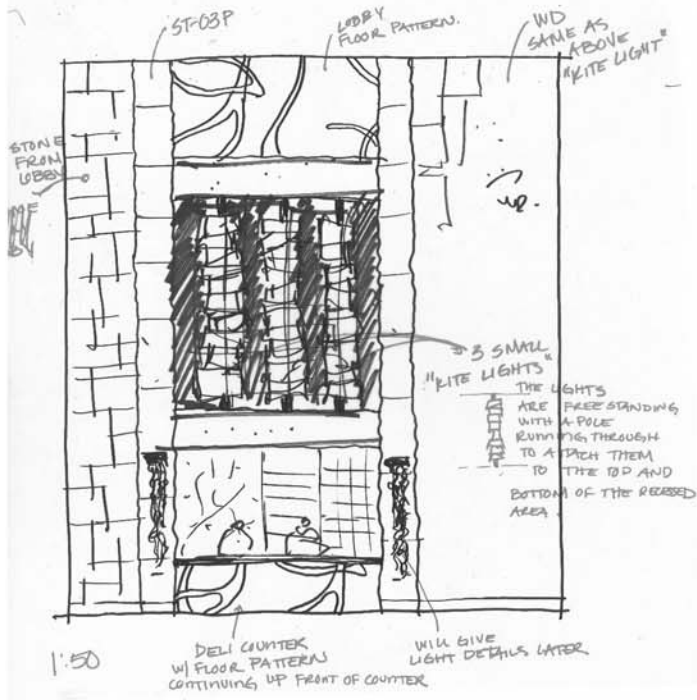 ST-03P
LOBBY
FLOOR PATTERN.
WD
SAME AS
ABOVE
"KITE LIGHT"
STONE
FROM
LOBBY
UP.
3 SMALL
"KITE LIGHTS"
THE LIGHTS
ARE FREE STANDING
WITH A POLE
RUNNING THROUGH
TO ATTACH THEM
TO THE TOP AND
BOTTOM OF THE RECESSED
AREA.
1:50
DELI COUNTER
W/ FLOOR PATTERN
CONTINUING UP FRONT OF COUNTER
WILL GIVE
LIGHT DETAILS LATER